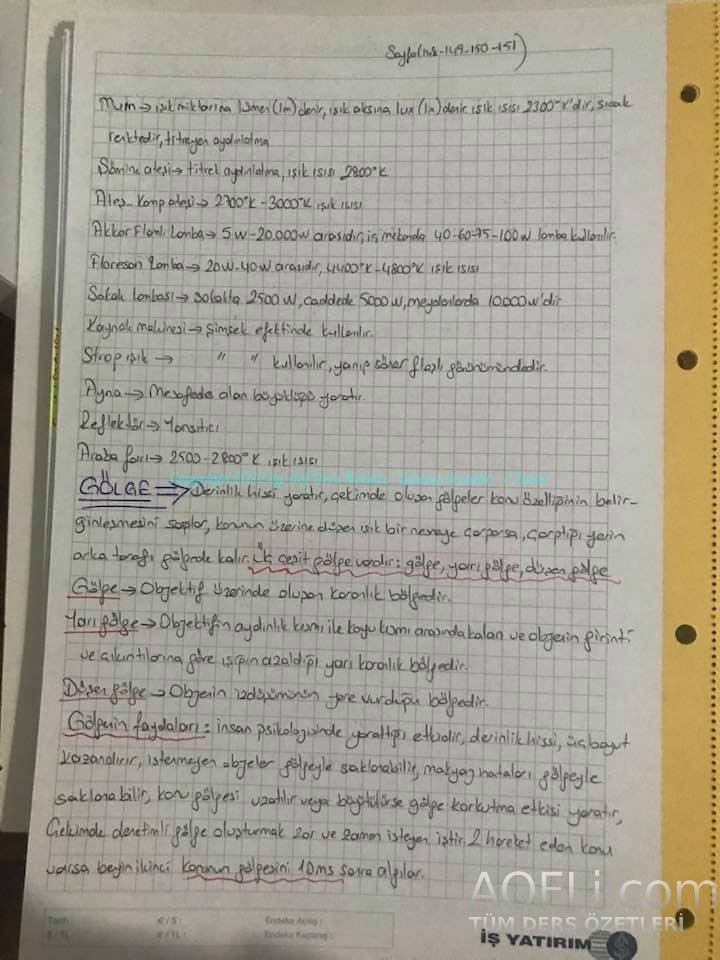 Sayfa(148-149-150-151)
Mum → ışık miktarına lümen (lm) denir, ışık akısına lux (lx) denir ışık ısısı 2300°K'dir, sıcak
renktedir, titreyen aydınlatma
Şömine ateşi → titrek aydınlatma, ışık ısısı 2800°K
Ateş-Kamp ateşi → 2700°K - 3000°K ışık ısısı
Akkor Flamlı Lamba → 5W-20.000W arasıdır, iç mekanda 40-60-75-100W lamba kullanılır.
Floresan Lamba → 20W-40W arasıdır, 4400°K-4800°K ışık ısısı
Sokak lambası → sokakta 2500W, caddede 5000W, meydanlarda 10.000W'dır
Kaynak makinesi → şimşek efektinde kullanılır.
Strop ışık → " " kullanılır, yanıp söner flaşlı görünümündedir.
Ayna → Mesafede alan büyüklüğü yaratır.
Reflektör → Yansıtıcı
Araba farı → 2500-2800°K ışık ısısı
GÖLGE ⇒ Derinlik hissi yaratır, çekimde oluşan gölgeler konu özelliğinin belir-
ginleşmesini sağlar, konunun üzerine düşen ışık bir nesneye çarparsa, çarptığı yerin
arka tarafı gölgede kalır. Üç çeşit gölge vardır: gölge, yarı gölge, düşen gölge
Gölge → Objektif üzerinde oluşan karanlık bölgedir.
Yarı gölge → Objektifin aydınlık kısmı ile koyu kısmı arasında kalan ve objenin girinti
ve çıkıntılarına göre ışığın azaldığı yarı karanlık bölgedir.
Düşen gölge → Objenin izdüşümünün yere vurduğu bölgedir.
Gölgenin faydaları: insan psikolojisinde yarattığı etkidir, derinlik hissi, üç boyut
kazandırır, istenmeyen objeler gölgeyle saklanabilir, makyaj hataları gölgeyle
saklanabilir, konu gölgesi uzatılır veya büyütülürse gölge korkutma etkisi yaratır,
Çekimde denetimli gölge oluşturmak zor ve zaman isteyen iştir. 2 hareket eden konu
varsa beyin ikinci konunun gölgesini 10ms sonra algılar.
AOFLi.com
TÜM DERS ÖZETLERİ
Tarih : K / S : Endeks Açılış :
K / TL : Endeks Kapanış :
İŞ YATIRIM